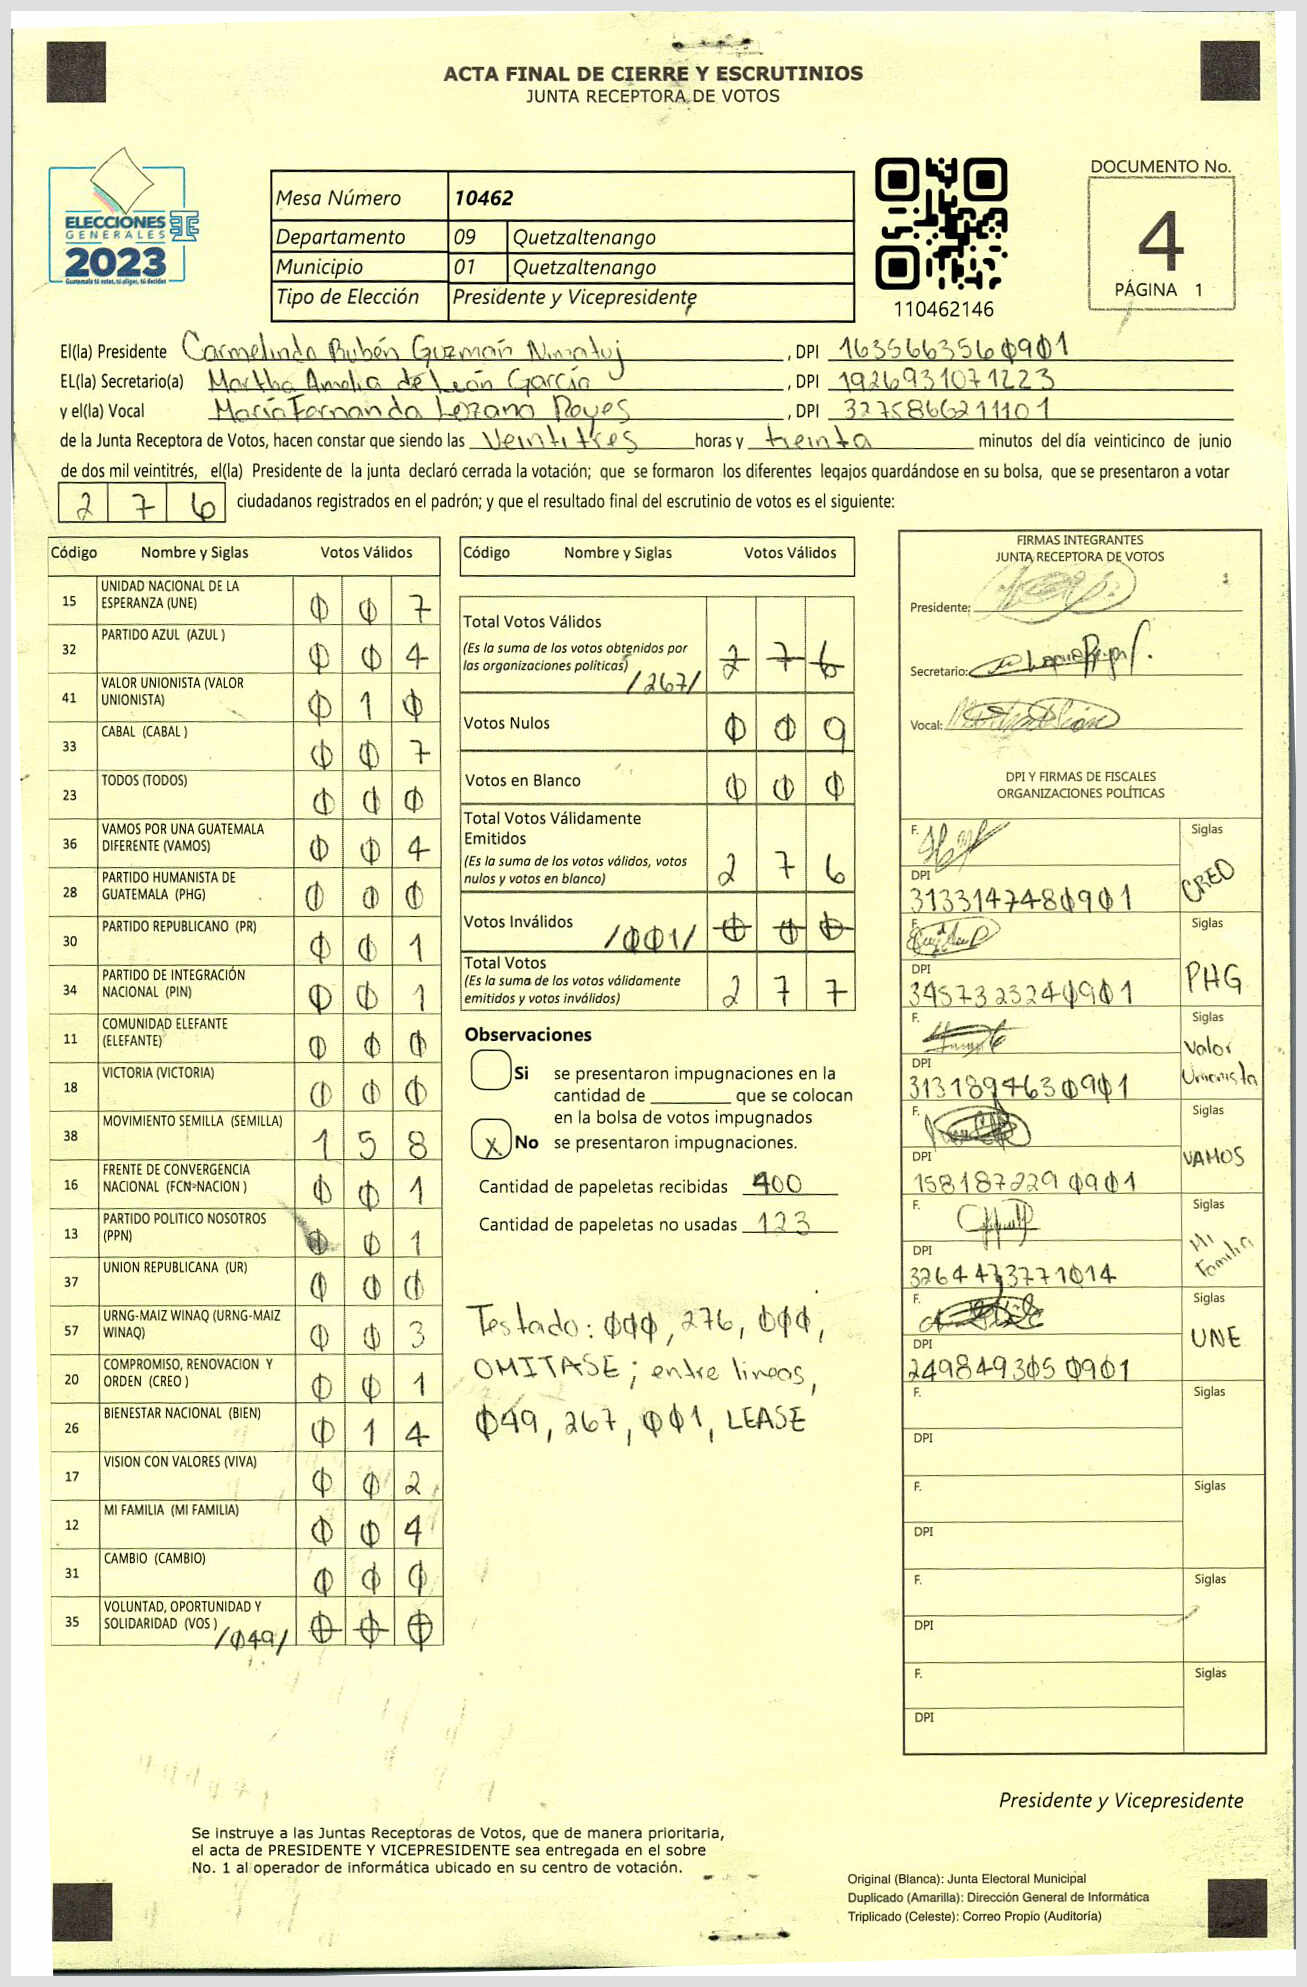 ACTA FINAL DE CIERRE Y ESCRUTINIOS
JUNTA RECEPTORA DE VOTOS
ELECCIONES
GENERALES
2023
Guatemala tú votas, tú eliges, tú decides
Mesa Número 10462
Departamento 09 Quetzaltenango
Municipio 01 Quetzaltenango
Tipo de Elección Presidente y Vicepresidente
110462146
DOCUMENTO No.
4
PÁGINA 1
El(la) Presidente Carmelindo Rubén Guzmán Nimatuj, DPI 1635663560901
EL(la) Secretario(a) Martha Amelia de León García, DPI 1926931071223
y el(la) Vocal María Fernanda Lozano Reyes, DPI 3275866211101
de la Junta Receptora de Votos, hacen constar que siendo las Veintitres horas y treinta minutos del día veinticinco de junio
de dos mil veintitrés, el(la) Presidente de la junta declaró cerrada la votación; que se formaron los diferentes legajos guardándose en su bolsa, que se presentaron a votar
276 ciudadanos registrados en el padrón; y que el resultado final del escrutinio de votos es el siguiente:
Código Nombre y Siglas Votos Válidos
15 UNIDAD NACIONAL DE LA ESPERANZA (UNE) 0 0 7
32 PARTIDO AZUL (AZUL ) 0 0 4
41 VALOR UNIONISTA (VALOR UNIONISTA) 0 1 0
33 CABAL (CABAL ) 0 0 7
23 TODOS (TODOS) 0 0 0
36 VAMOS POR UNA GUATEMALA DIFERENTE (VAMOS) 0 0 4
28 PARTIDO HUMANISTA DE GUATEMALA (PHG) 0 0 0
30 PARTIDO REPUBLICANO (PR) 0 0 1
34 PARTIDO DE INTEGRACIÓN NACIONAL (PIN) 0 0 1
11 COMUNIDAD ELEFANTE (ELEFANTE) 0 0 0
18 VICTORIA (VICTORIA) 0 0 0
38 MOVIMIENTO SEMILLA (SEMILLA) 1 5 8
16 FRENTE DE CONVERGENCIA NACIONAL (FCN-NACION ) 0 0 1
13 PARTIDO POLITICO NOSOTROS (PPN) 0 0 1
37 UNION REPUBLICANA (UR) 0 0 0
57 URNG-MAIZ WINAQ (URNG-MAIZ WINAQ) 0 0 3
20 COMPROMISO, RENOVACION Y ORDEN (CREO ) 0 0 1
26 BIENESTAR NACIONAL (BIEN) 0 1 4
17 VISION CON VALORES (VIVA) 0 0 2
12 MI FAMILIA (MI FAMILIA) 0 0 4
31 CAMBIO (CAMBIO) 0 0 0
35 VOLUNTAD, OPORTUNIDAD Y SOLIDARIDAD (VOS ) /049/ 0 0 0
Código Nombre y Siglas Votos Válidos
Total Votos Válidos
(Es la suma de los votos obtenidos por
las organizaciones políticas) /267/ 2 7 6
Votos Nulos 0 0 9
Votos en Blanco 0 0 0
Total Votos Válidamente
Emitidos
(Es la suma de los votos válidos, votos
nulos y votos en blanco) 2 7 6
Votos Inválidos /001/ 0 0 0
Total Votos
(Es la suma de los votos válidamente
emitidos y votos inválidos) 2 7 7
Observaciones
Si se presentaron impugnaciones en la
cantidad de ________ que se colocan
en la bolsa de votos impugnados
X No se presentaron impugnaciones.
Cantidad de papeletas recibidas 400
Cantidad de papeletas no usadas 123
Testado: 000, 276, 000,
OMITASE; entre lineas,
049, 267, 001, LEASE
FIRMAS INTEGRANTES
JUNTA RECEPTORA DE VOTOS
Presidente:
Secretario:
Vocal:
DPI Y FIRMAS DE FISCALES
ORGANIZACIONES POLÍTICAS
F. Siglas CREO
DPI 3133147480901
F. Siglas PHG
DPI 3457323240901
F. Siglas Valor Unionista
DPI 3131894630901
F. Siglas VAMOS
DPI 1581872290901
F. Siglas Mi Familia
DPI 3264473771014
F. Siglas UNE
DPI 2498493050901
F. Siglas
DPI
F. Siglas
DPI
F. Siglas
DPI
F. Siglas
DPI
Presidente y Vicepresidente
Se instruye a las Juntas Receptoras de Votos, que de manera prioritaria,
el acta de PRESIDENTE Y VICEPRESIDENTE sea entregada en el sobre
No. 1 al operador de informática ubicado en su centro de votación.
Original (Blanca): Junta Electoral Municipal
Duplicado (Amarilla): Dirección General de Informática
Triplicado (Celeste): Correo Propio (Auditoría)